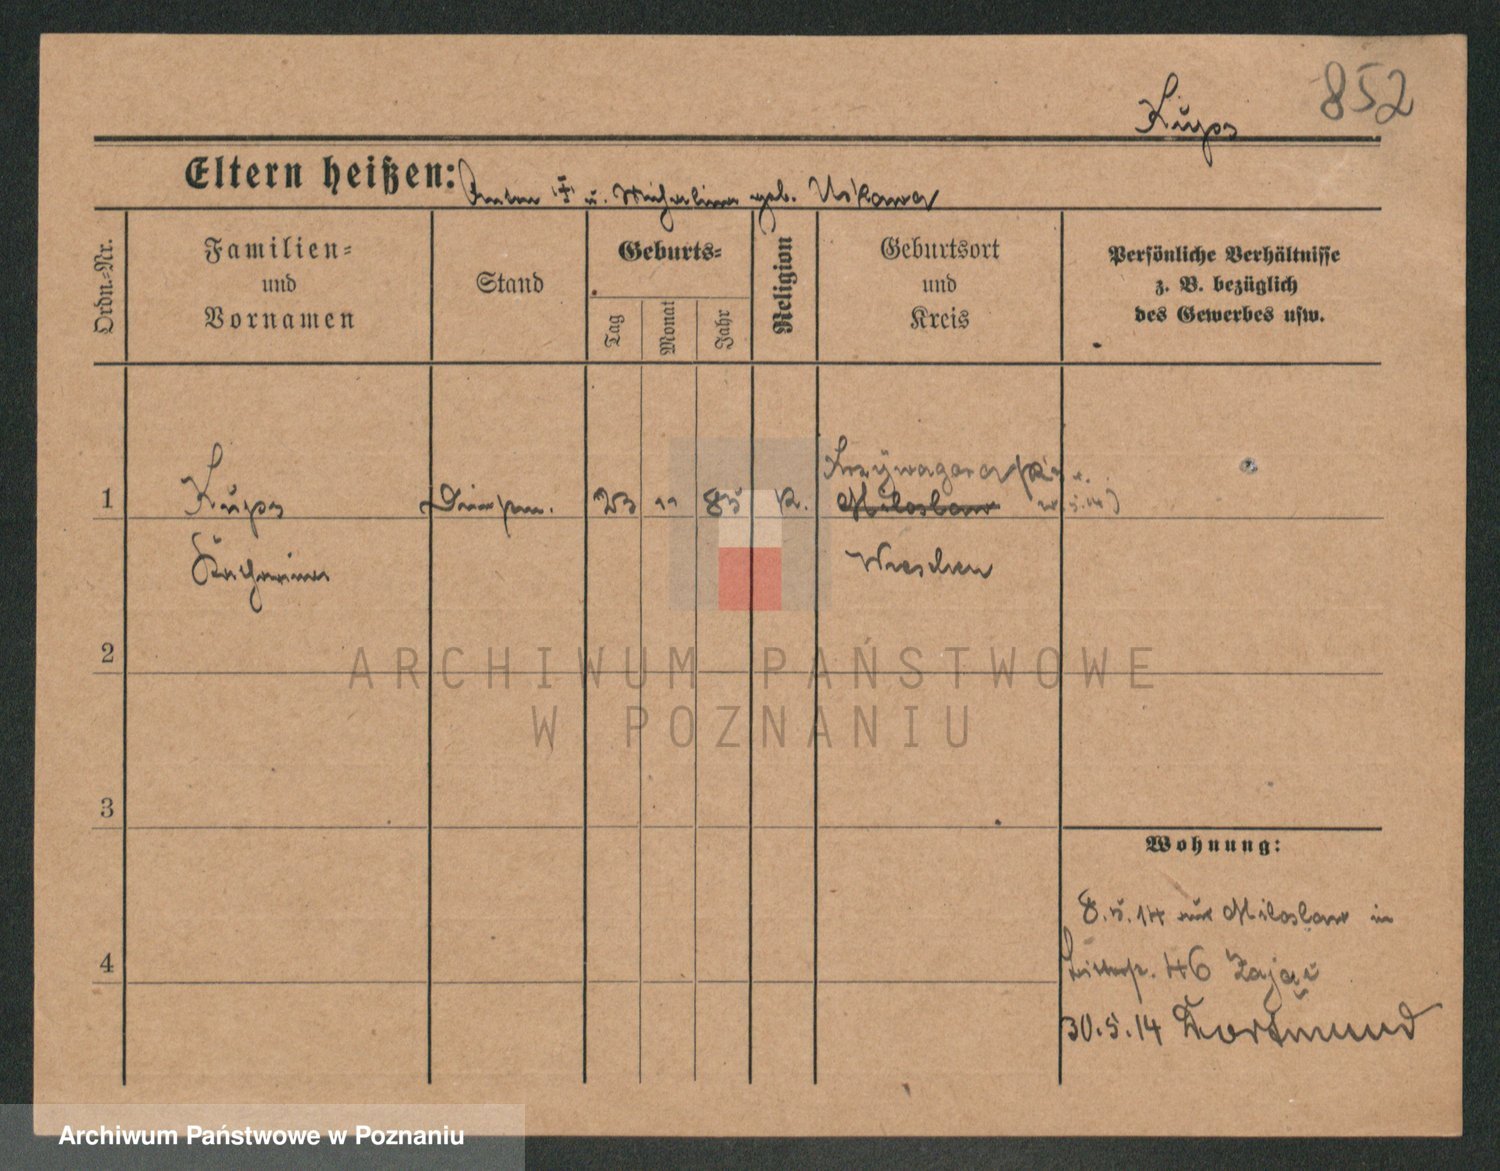 852
Kups
Eltern heißen: Anton u. Michalina geb.
Ordn.-Nr.
Familien-
und
Vornamen
Stand
Geburts-
Tag
Monat
Jahr
Religion
Geburtsort
und
Kreis
Persönliche Verhältnisse
z. B. bezüglich
des Gewerbes usw.
1
Kups
23 11 85 k.
Miloslaw
Katharina
Wreschen
2
ARCHIWUM PAŃSTWOWE
W POZNANIU
3
Wohnung:
8.5.14 aus Miloslaw in
4
46 Zając
30.5.14 Dortmund
Archiwum Państwowe w Poznaniu